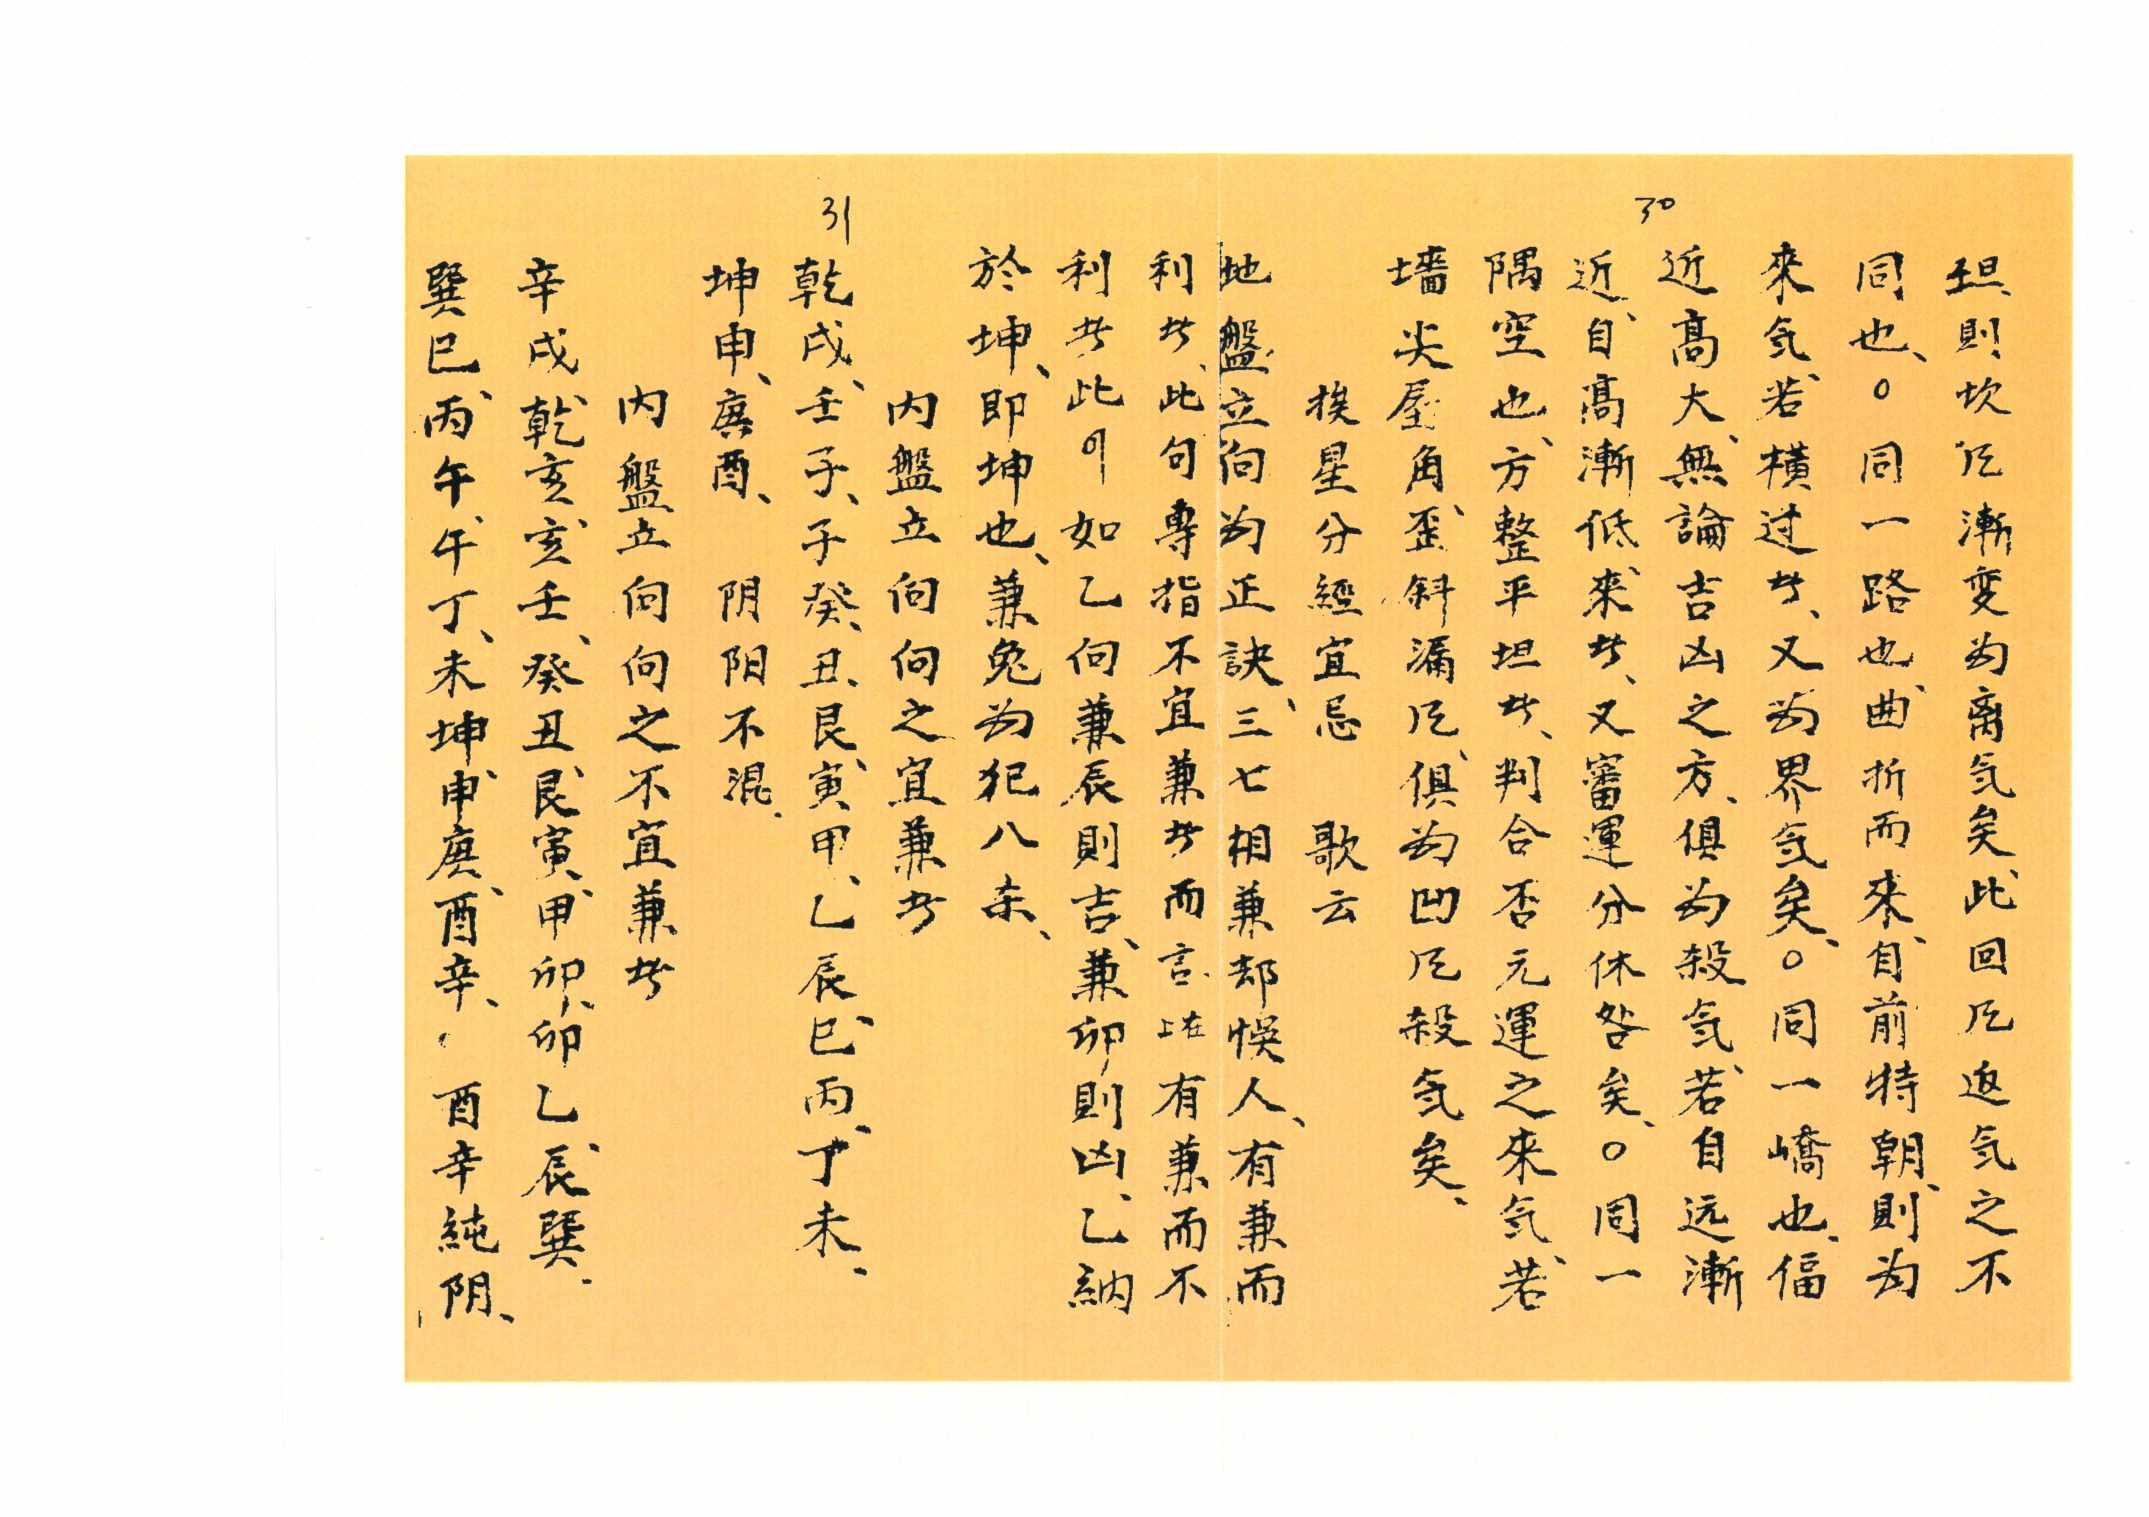 30
坦、則坎风漸变为离気矣、此回风返気之不
同也、○同一路也、曲折而來、自前特朝、則为
來気、若横过者、又为界気矣、○同一嶠也、偪
近高大、無論吉凶之方、俱为殺気、若自远漸
近、自高漸低來者、又審運分休咎矣、○同一
隅空也、方整平坦者、判合否元運之來気、若
墻尖屋角、歪斜漏风、俱为凹风殺気矣、
挨星分經宜忌 歌云
地盤立向为正訣、三七相兼却悞人、有兼而
利者、此句專指不宜兼者而言、比在有兼而不
31
利者此叩如乙向兼辰則吉、兼卯則凶、乙納
於坤、即坤也、兼兔为犯八杀、
内盤立向向之宜兼者
乾戌、壬子、子癸、丑艮、寅甲、乙辰、巳丙、丁未、
坤申、庚酉、 阴阳不混、
内盤立向向之不宜兼者
辛戌、乾亥、亥壬、癸丑、艮寅、甲卯、卯乙、辰巽、
巽巳、丙午、午丁、未坤、申庚、酉辛、酉辛純阴、